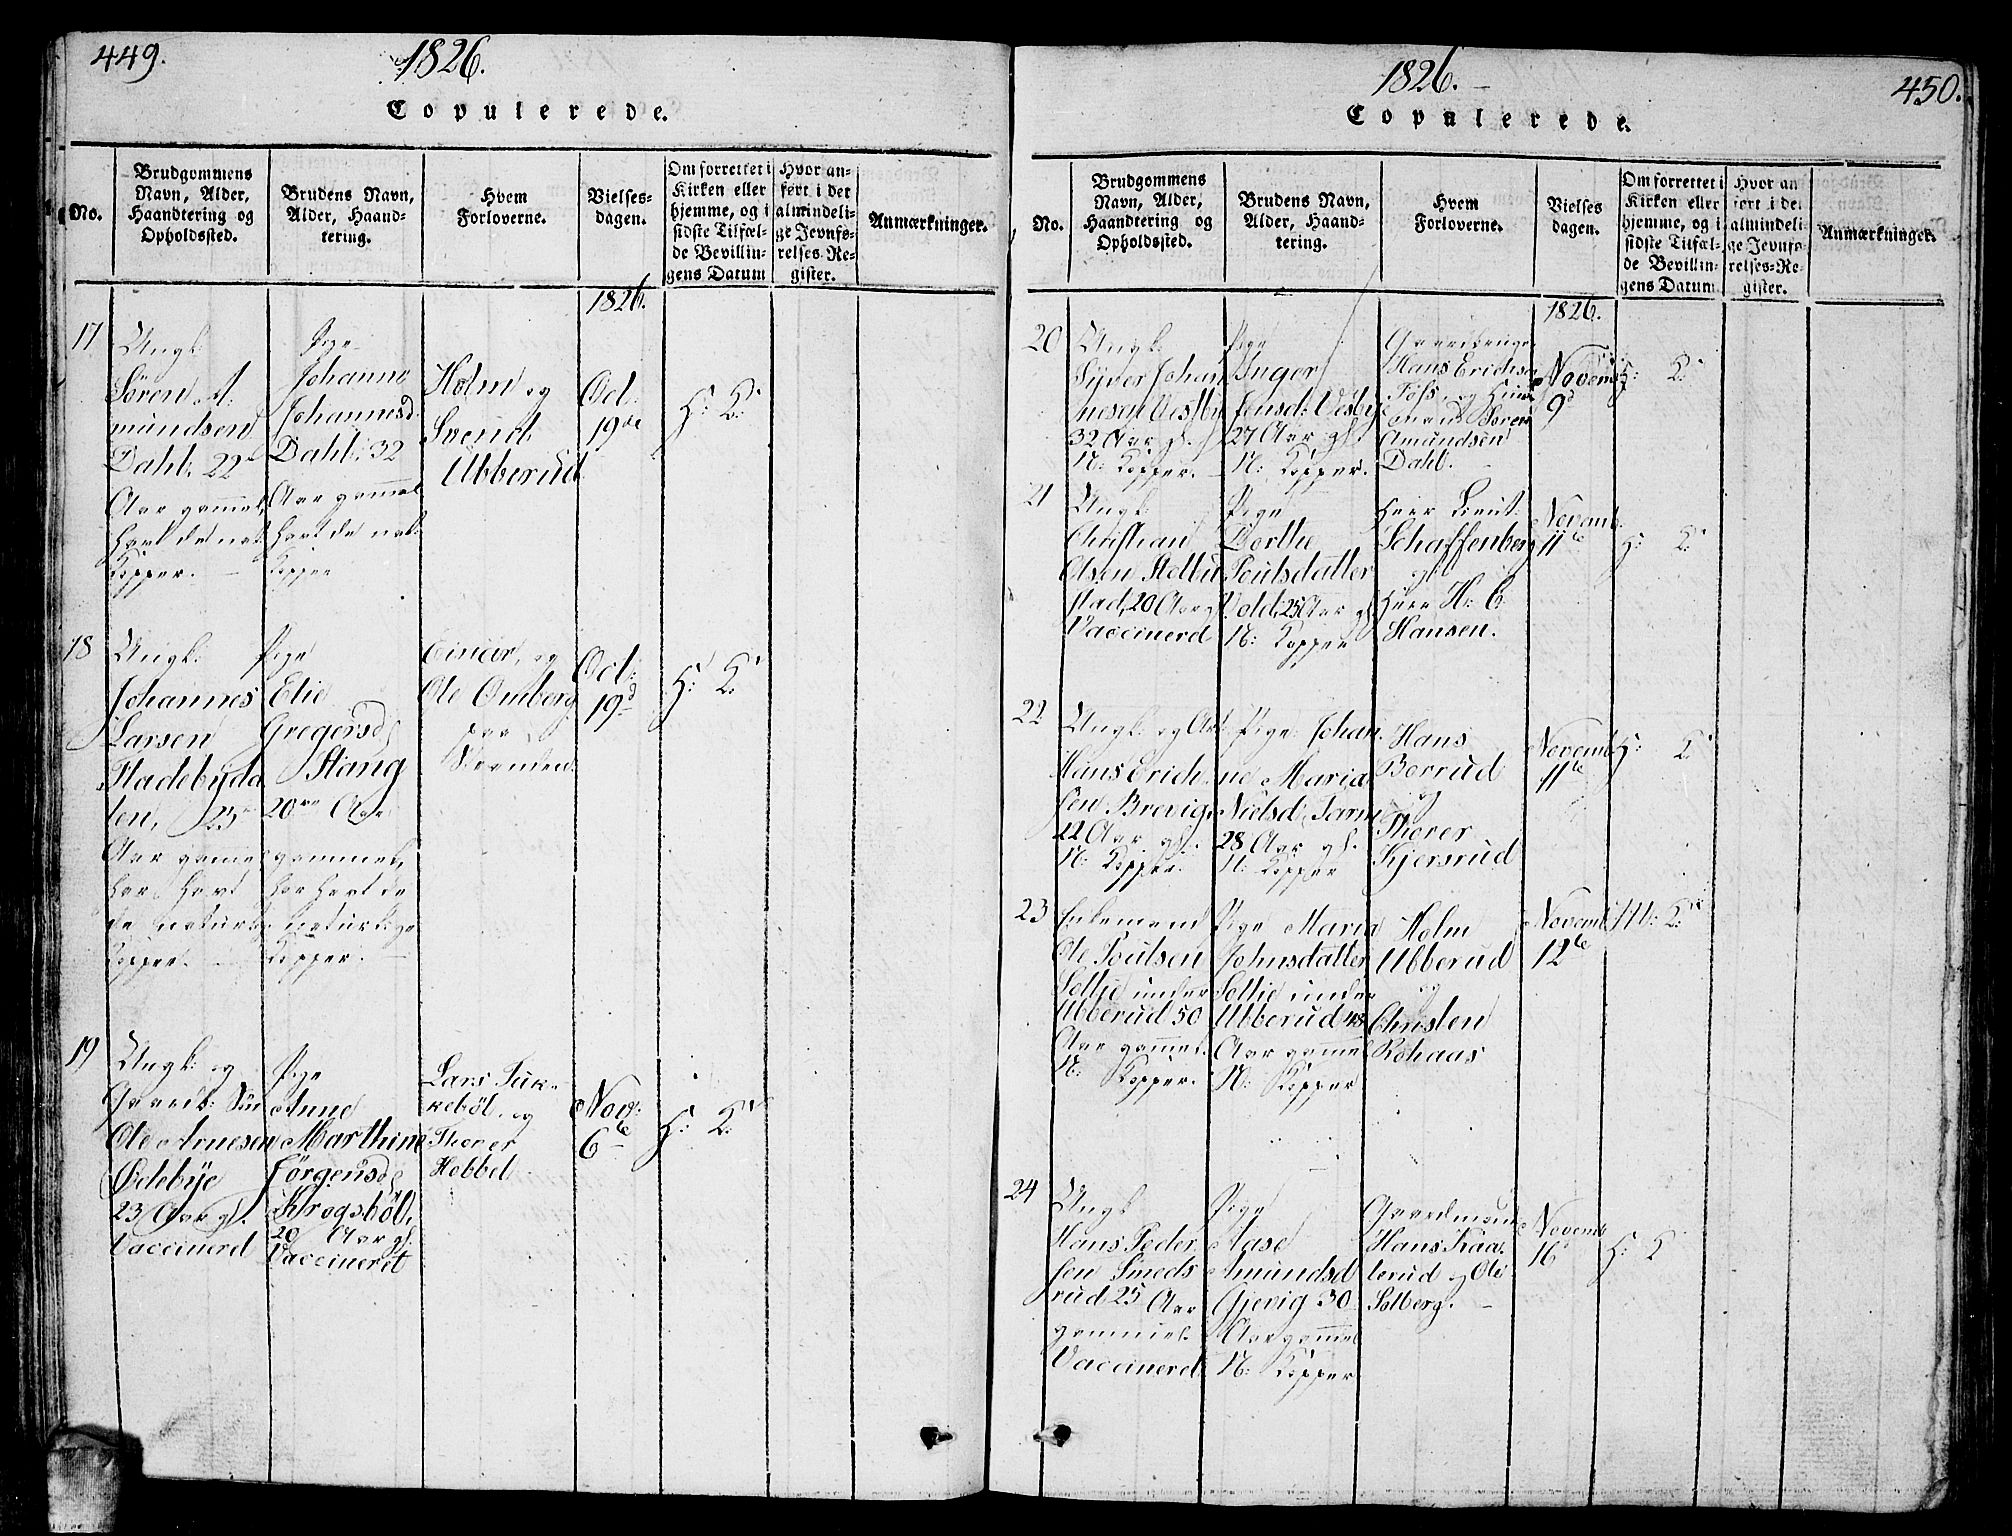 449.
1826.
Copulerede.
No.
Brudgommens
Navn, Alder,
Haandtering og
Opholdssted.
Brudens Navn,
Alder, Haand-
tering.
Hvem
Forloverne.
Vielses-
dagen.
Om forrettet i
Kirken eller
hjemme, og i
sidste Tilfæl-
de Bevillin-
gens Datum
Hvor an-
ført i det
almindeli-
ge Jevnfø-
relses-Re-
gister.
Anmærkninger.
1826.
17
Ungk:
Sören A-
mundsen
Dahl: 22
Aar gammel,
havt de nat:
Kopper.
Pige
Johanne
Johannesd:
Dahl: 32
Aar gammel
havt de nat:
Kopper
Holm og
Svend
Ubberud
Oct:
19de
H: K:
18
Ungk:
Johannes
Larsen
Stadebyda
len, 25
Aar gamel
har havt
de naturl:
Kopper.
Pige
Elie
Gregersd
Stang
20 Aar
gammel,
har havt de
naturlige
Kopper.
Einar, og
Ole Omberg
paa
Oct:
19d
H: K:
19
Ungk: og
Gaardb: Sön
Ole Arnesen
Ödebye
23 Aar gl.
Vaccinerd
Pige
Anne
Marthine
Jörgensd
Krogsböl,
20 Aar gl:
Vaccineret
Lars Tuk-
keböl, og
Thorer
Hobbel
Nov:
6te
H: K:
1826.
450.
Copulerede.
No.
Brudgommens
Navn, Alder,
Haandtering og
Opholdssted.
Brudens Navn,
Alder, Haand-
tering.
Hvem
Forloverne.
Vielses
dagen.
Om forrettet i
Kirken eller
hjemme, og i
sidste Tilfæl-
de Bevillin-
gens Datum
Hvor an
ført i det
almindeli-
ge Jevnfø-
relses-Re-
gister.
Anmærkninger.
1826.
20
Ungk:
Syver Johan
nesen Vestby
32 Aar gl.
N: Kopper.
Pige
Inger
Jensd: Vesbye
27 Aar gl.
N: Kopper.
Hans Erichsen
Foss, og
Sören
Amundsen
Dahl.
Novemb:
9d
H: K:
21
Ungk:
Christian
Olsen Stellu
stad, 20 Aar gl
Vaccinerd
Pige
Dorthe
Poulsdatter
Vold, 25 Aar gl
N: Kopper
Herr Lieut:
Schaffenberg
og
Herr H: C:
Hansen.
Novemb:
11te
H: K:
22
Ungk: og
Hans Erich
sen Brevig.
22 Aar gl.
N: Kopper.
Pige: Johan
ne Maria
Nielsd:
28 Aar gl.
N: Kopper
Hans
Borrud
og
Thorer
Kjersrud
Novemb
11te
H: K:
23
Enkemand
Ole Poulsen
Sollie under
Ubberud 50
Aar gamel.
N: Kopper.
Pige Maria
Johnsdatter
Sollie under
Ubberud 48
Aar gamel
N: Kopper
Holm
Ubberud
og
Christen
Rohaus
Novemb
12te
H: K:
24
Ungk
Hans Peder
sen Smeds
rud 25 Aar
gammel.
Vaccinerd
Pige
Aase
Amundsd
Gjevig 30
Aar gamel
N: Kopper
Gaardmand
Hans Kaa
terud og Ole
Solberg.
Novemb
16
H: K